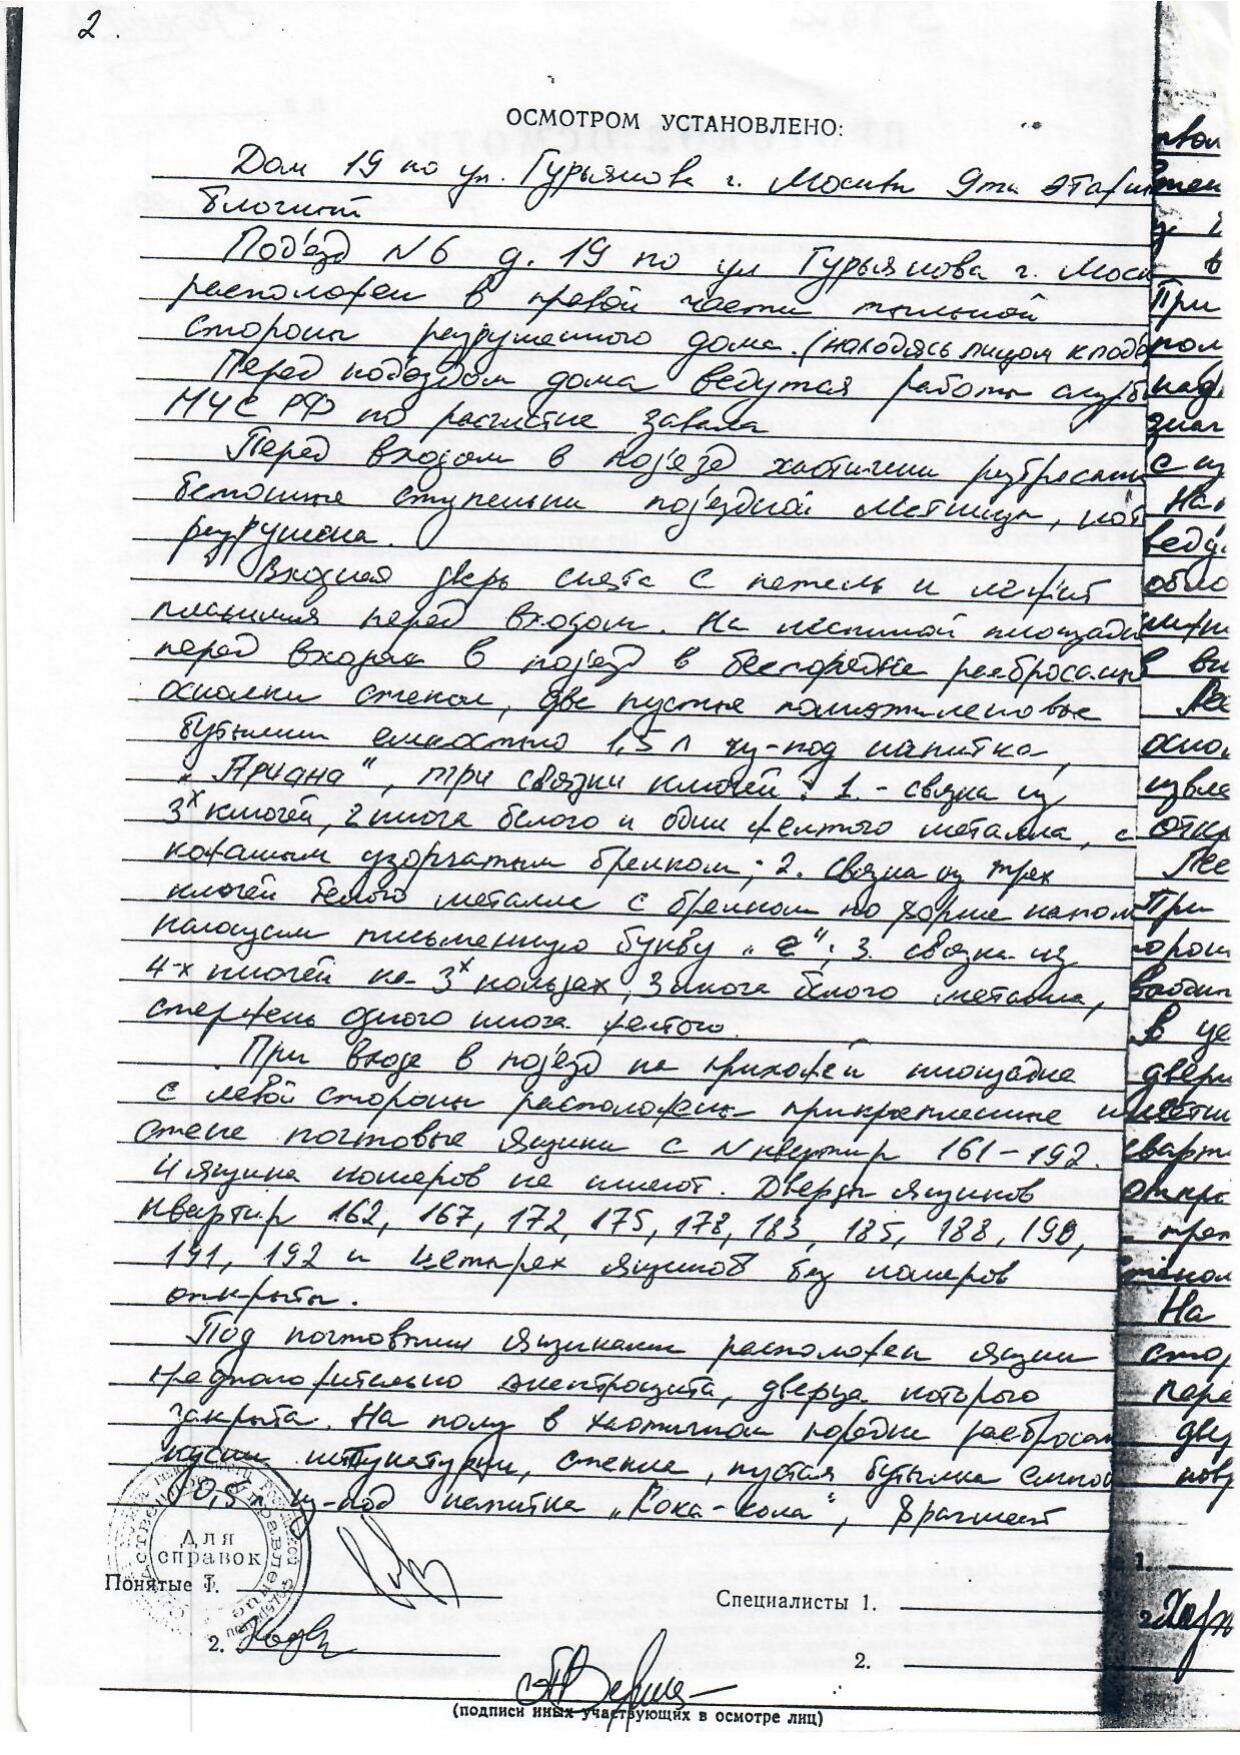 2.
ОСМОТРОМ УСТАНОВЛЕНО:
Дом 19 по ул. Гурьянова г. Москвы 9ти этажн
блочный
Под'езд N6 д. 19 по ул Гурьянова г. Моск
расположен в правой части тыльной
стороны разрушенного дома. (находясь лицом к подъ
Перед подъездом дома ведутся работы служб
МЧС РФ по расчистке завала
Перед входом в под'езд хаотично разбросаны
бетонные ступеньки под'ездной лестницы, кот
разрушена.
Входная дверь снята с петель и лежит
плашмя перед входом. На лестничной площадке
перед входом в под'езд в беспорядке разбросаны
осколки стекол, две пустые полиэтиленовые
бутылки емкостью 1,5л из-под напитка
„Ариана“, три связки ключей: 1. - связка из
3х ключей, 2 ключа белого и один желтого металла, с
кожаным узорчатым брелком; 2. связка из трех
ключей белого металла с брелком по форме напом
письменную букву „е“; 3. связка из
4-х ключей на 3х кольцах, 3 ключа белого металла,
стержень одного ключа желтого.
При входе в под'езд на площадке
с левой стороны расположены прикрепленные к
стене почтовые ящики с N квартир 161-192.
4 ящика номеров не имеют. Дверцы ящиков
квартир 162, 167, 172, 175, 178, 183, 185, 188, 190,
191, 192 и четырех ящиков без номеров
открыты.
Под почтовыми ящиками расположен ящик
предположительно электрощита, дверца которого
закрыта. На полу в хаотичном порядке разбросан
куски штукатурки, стекла, пустая бутылка емкос
0,5 л из-под напитка „Кока-кола“, фрагмент
Для
справок
Понятые 1.
Специалисты 1.
2.
2.
(подписи иных участвующих в осмотре лиц)
При
пол
над
знач
с из
На
веду
обло
в ви
оско
извле
откр
При
В це
двери
кварт
откры
На
стор
пере
две
1.
2.